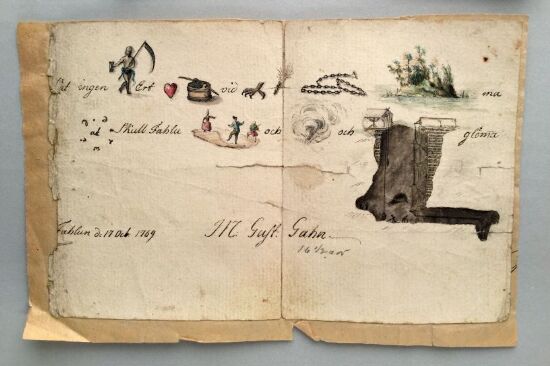 Låt ingen Ert vid ma
at Skull Fahlu och och glöma
Fahlun d. 17 Oct 1769
M. Gust. Gahn
16 1/2